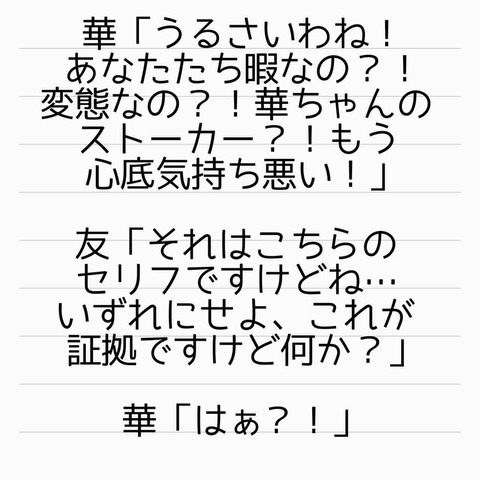 華「うるさいわね！
あなたたち暇なの？！
変態なの？！華ちゃんの
ストーカー？！もう
心底気持ち悪い！」
友「それはこちらの
セリフですけどね…
いずれにせよ、これが
証拠ですけど何か？」
華「はぁ？！」